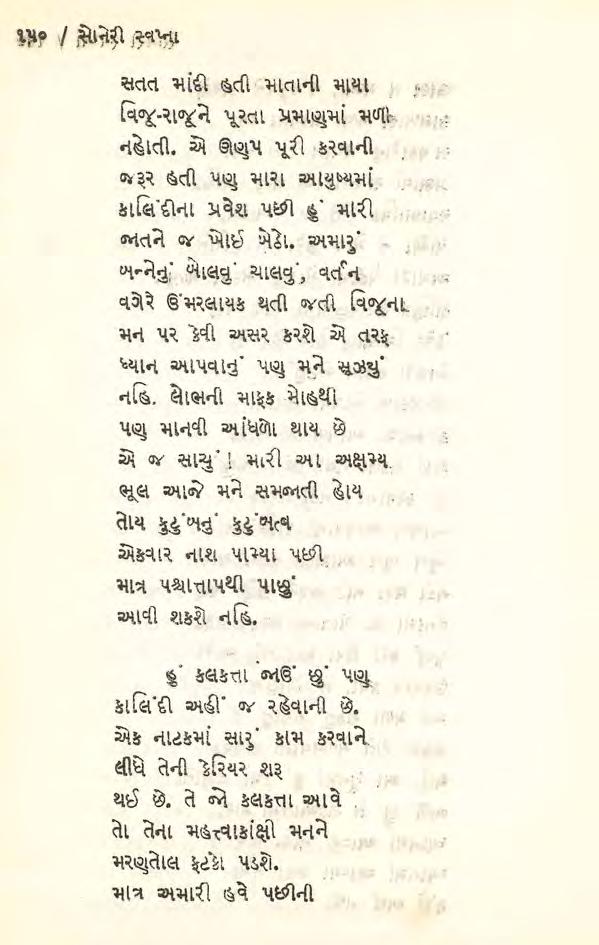 ૧૫૦ / સોનેરી સ્વપ્ના
સતત માંદી હતી માતાની માયા
વિજૂ-રાજૂને પૂરતા પ્રમાણમાં મળી
નહોતી. એ ઊણપ પૂરી કરવાની
જરૂર હતી પણ મારા આયુષ્યમાં
કાલિંદીના પ્રવેશ પછી હું મારી
જાતને જ ખોઈ બેઠો. અમારું
બન્નેનું બોલવું ચાલવું, વર્તન
વગેરે ઉંમરલાયક થતી જતી વિજૂના
મન પર કેવી અસર કરશે એ તરફ
ધ્યાન આપવાનું પણ મને સૂઝ્યું
નહિ. લોભની માફક મોહથી
પણ માનવી આંધળો થાય છે
એ જ સાચું! મારી આ અક્ષમ્ય
ભૂલ આજે મને સમજાતી હોય
તોય કુટુંબનું કુટુંબત્વ
એકવાર નાશ પામ્યા પછી
માત્ર પશ્ચાત્તાપથી પાછું
આવી શકશે નહિ.
હું કલકત્તા જાઉં છું પણ
કાલિંદી અહીં જ રહેવાની છે.
એક નાટકમાં સારું કામ કરવાને
લીધે તેની કેરિયર શરૂ
થઈ છે. તે જો કલકત્તા આવે
તો તેના મહત્ત્વાકાંક્ષી મનને
મરણતોલ ફટકો પડશે.
માત્ર અમારી હવે પછીની